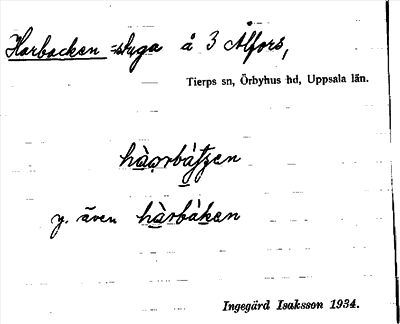 Harbacken =stuga å 3 Älfors,
Tierps sn, Örbyhus hd, Uppsala län.
hàơrbátzen
y. även hàrbáken
Ingegärd Isaksson 1934.